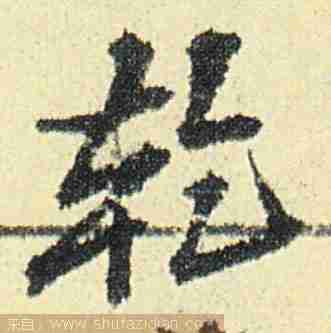 乾
来自:www.shufazidian.com